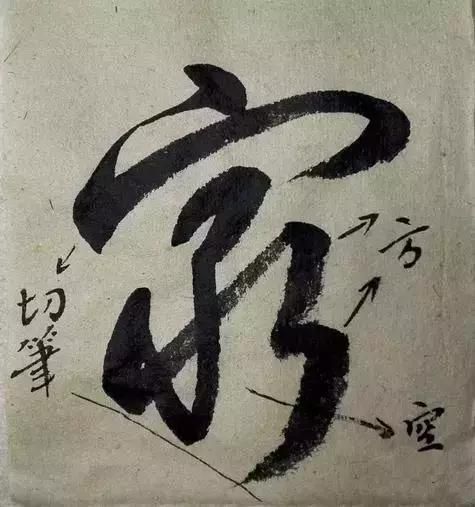 方
切筆
空